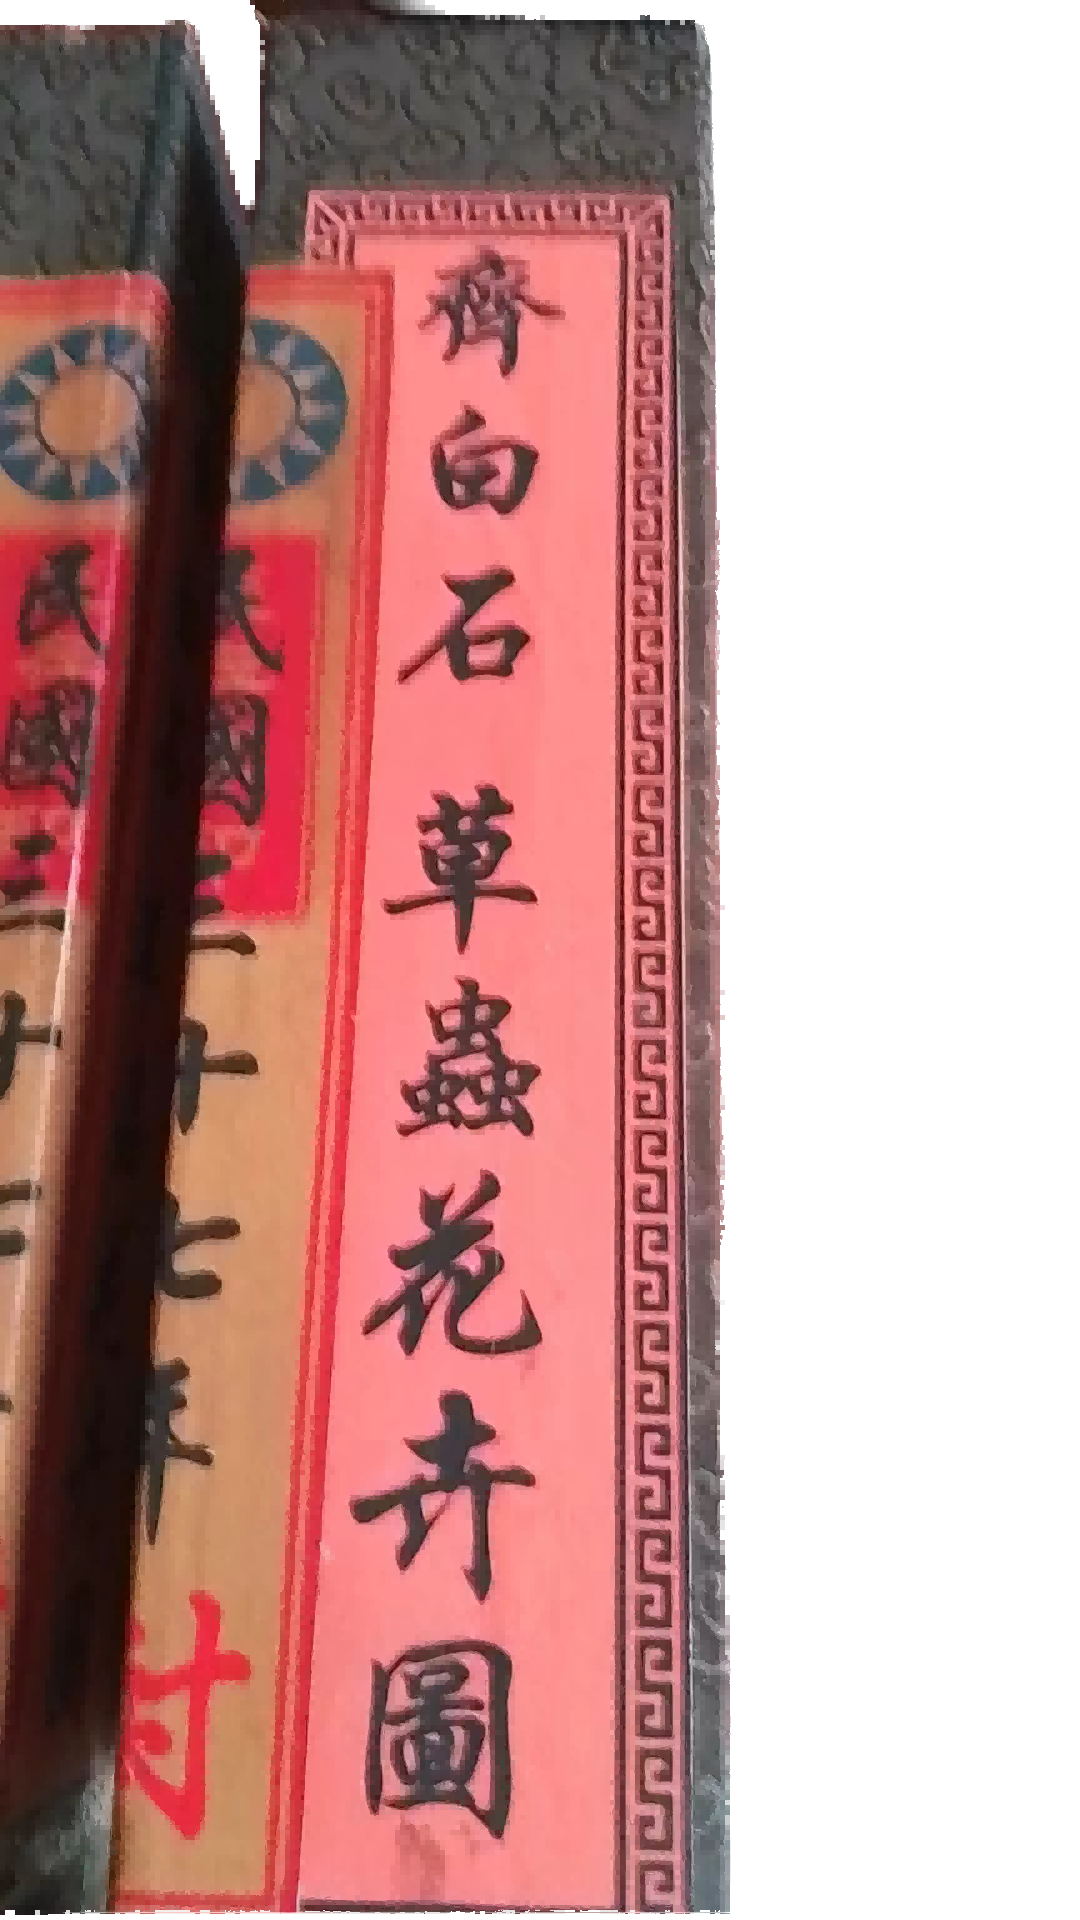 齊白石 草蟲花卉圖
民國三十七年
民國三十